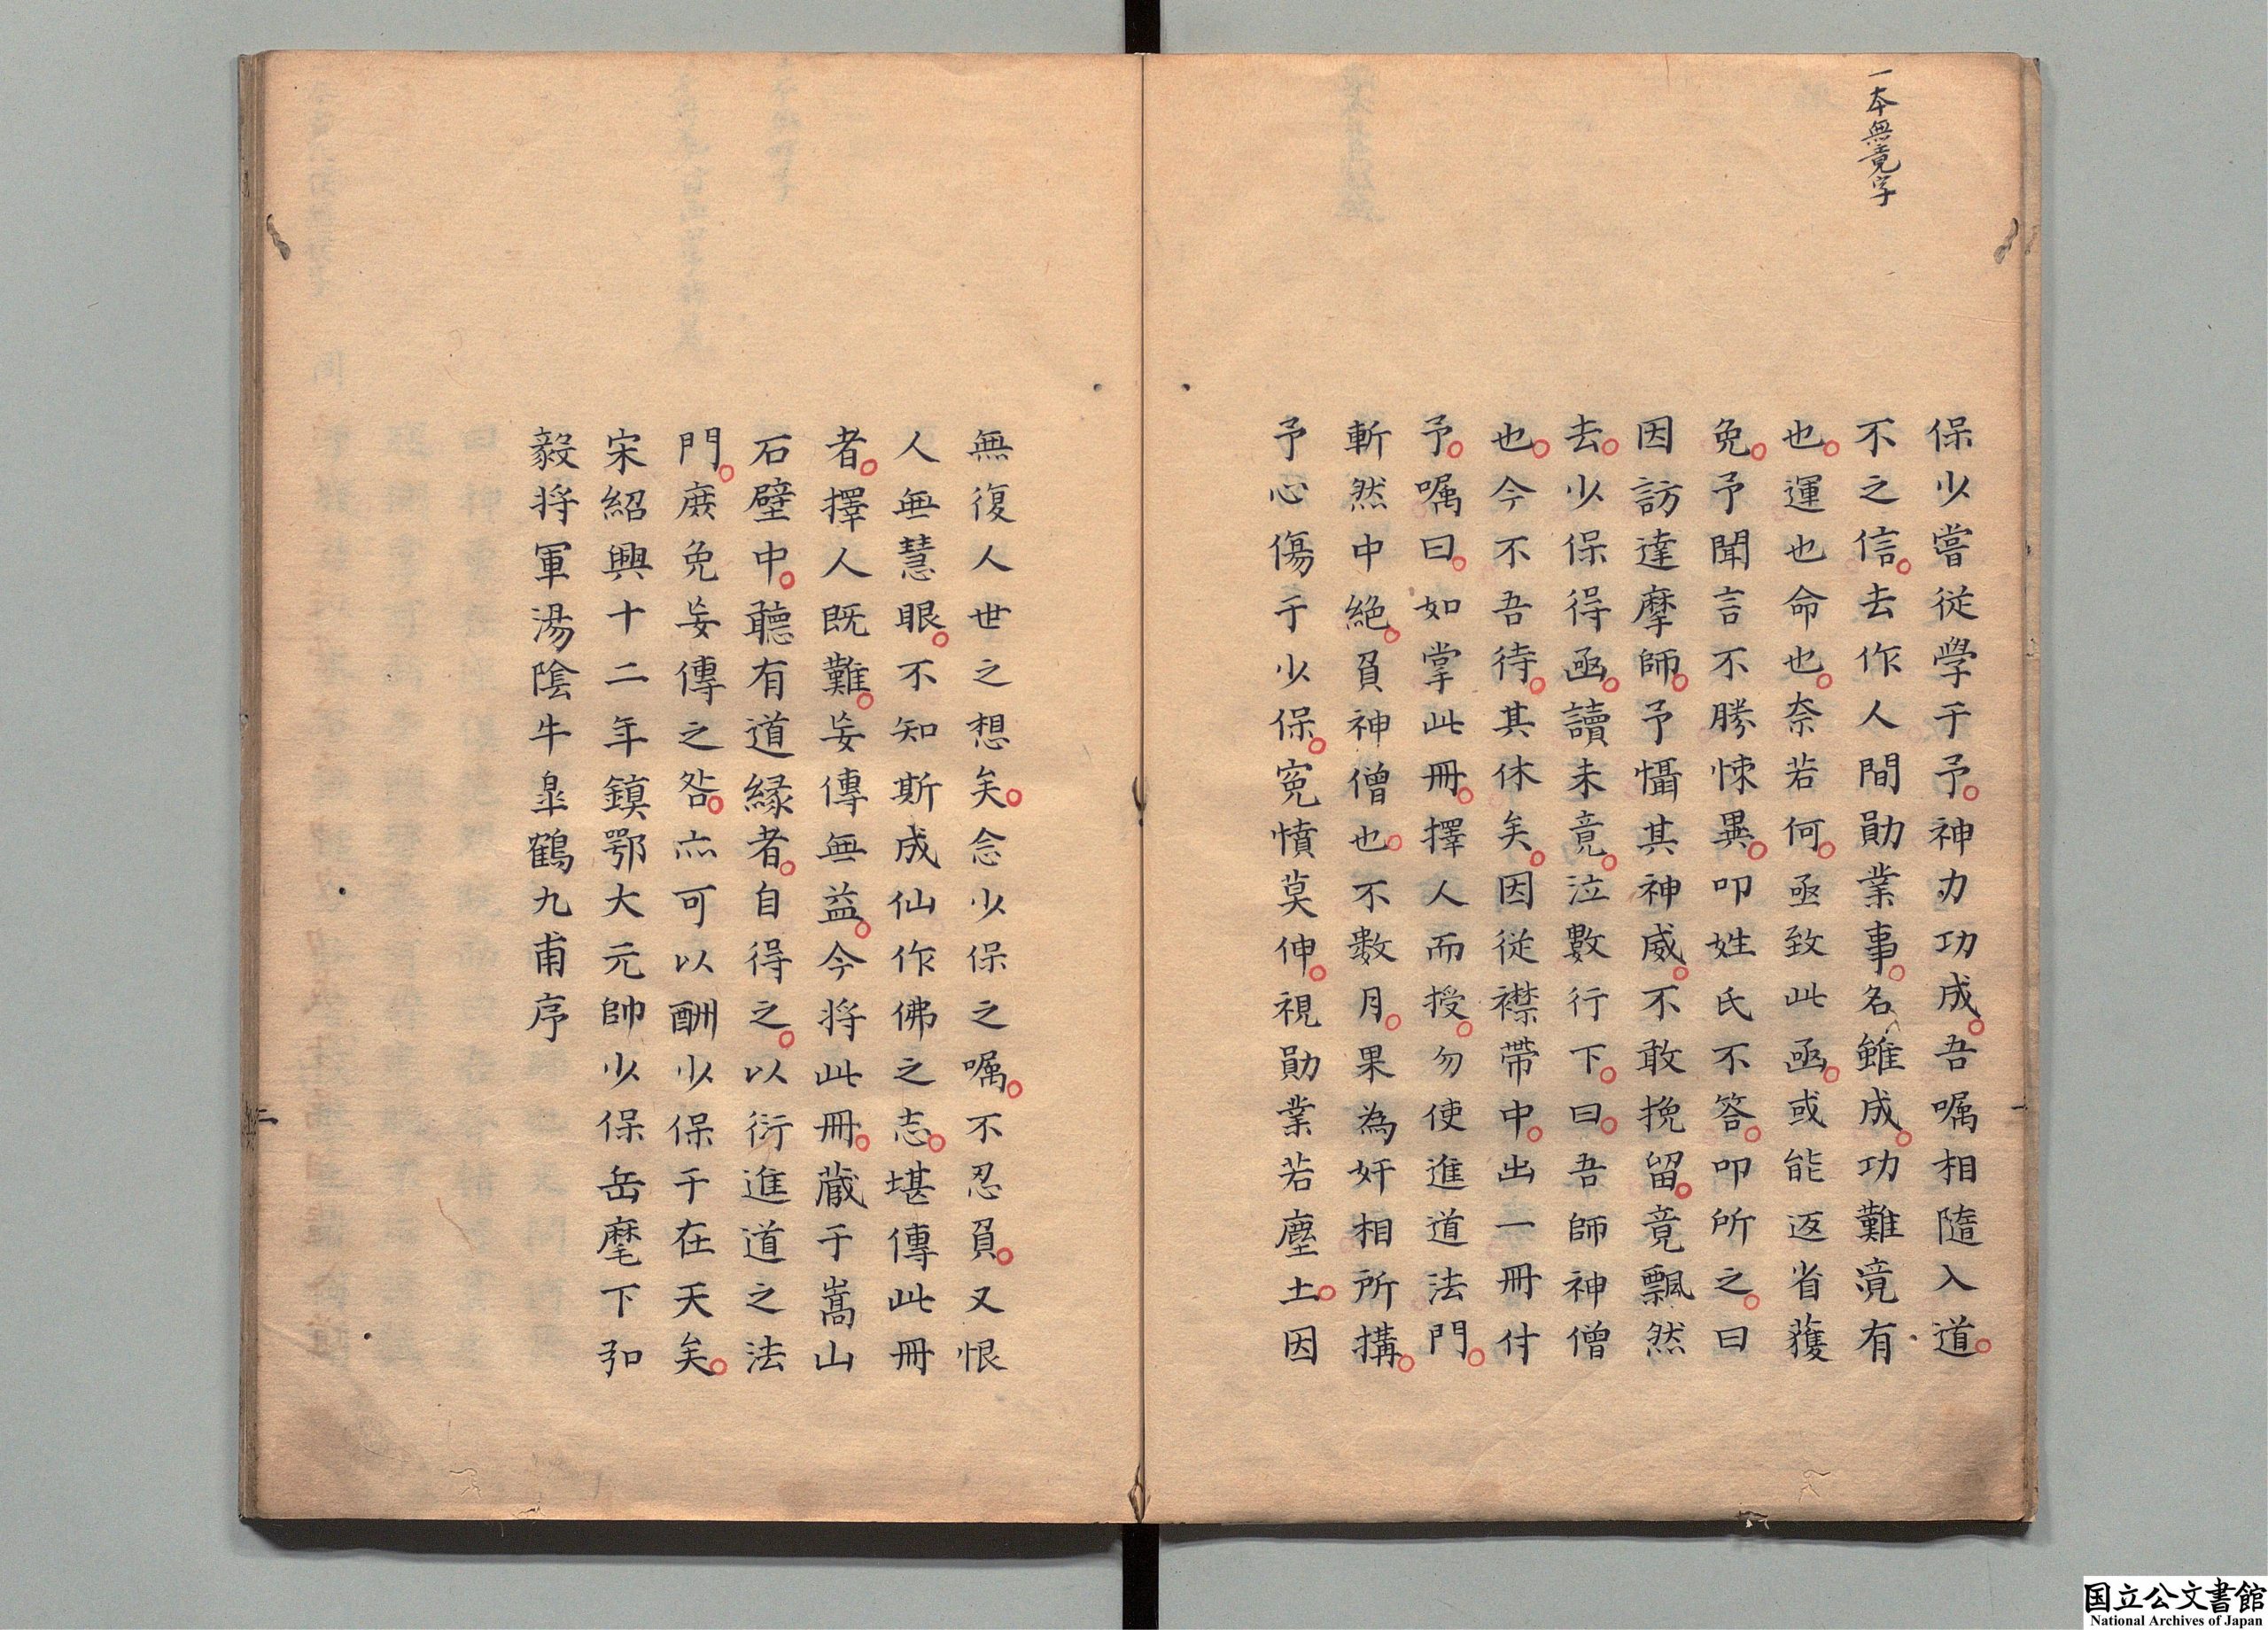 一本無竟字
保少嘗従學于予。神力功成。吾嘱相隨入道。
不之信。去作人間勛業事。名雖成。功難竟有
也。運也命也。奈若何。亟致此函。或能返省獲
免。予聞言不勝悚異。叩姓氏不答。叩所之。曰
因訪達摩師。予懾其神威。不敢挽留。竟飄然
去。少保得函。讀未竟。泣數行下。曰。吾師神僧
也。今不吾待。其休矣。因從襟帶中。出一冊付
予。嘱曰。如掌此冊。擇人而授。勿使進道法門。
斬然中絶。負神僧也。不数月。果為奸相所搆。
予心傷于少保。寃憤莫伸。視勛業若塵土。因
無復人世之想矣。念少保之嘱。不忍負。又恨
人無慧眼。不知斯成仙作佛之志。堪傳此冊
者。擇人既難。妄傳無益。今将此冊。蔵于嵩山
石壁中。聽有道縁者。自得之。以衍進道之法
門。庶免妄傳之咎。亦可以酬少保于在天矣。
宋紹興十二年鎮鄂大元帥少保岳麾下弘
毅将軍湯陰牛皐鶴九甫序
一
二
国立公文書館
National Archives of Japan